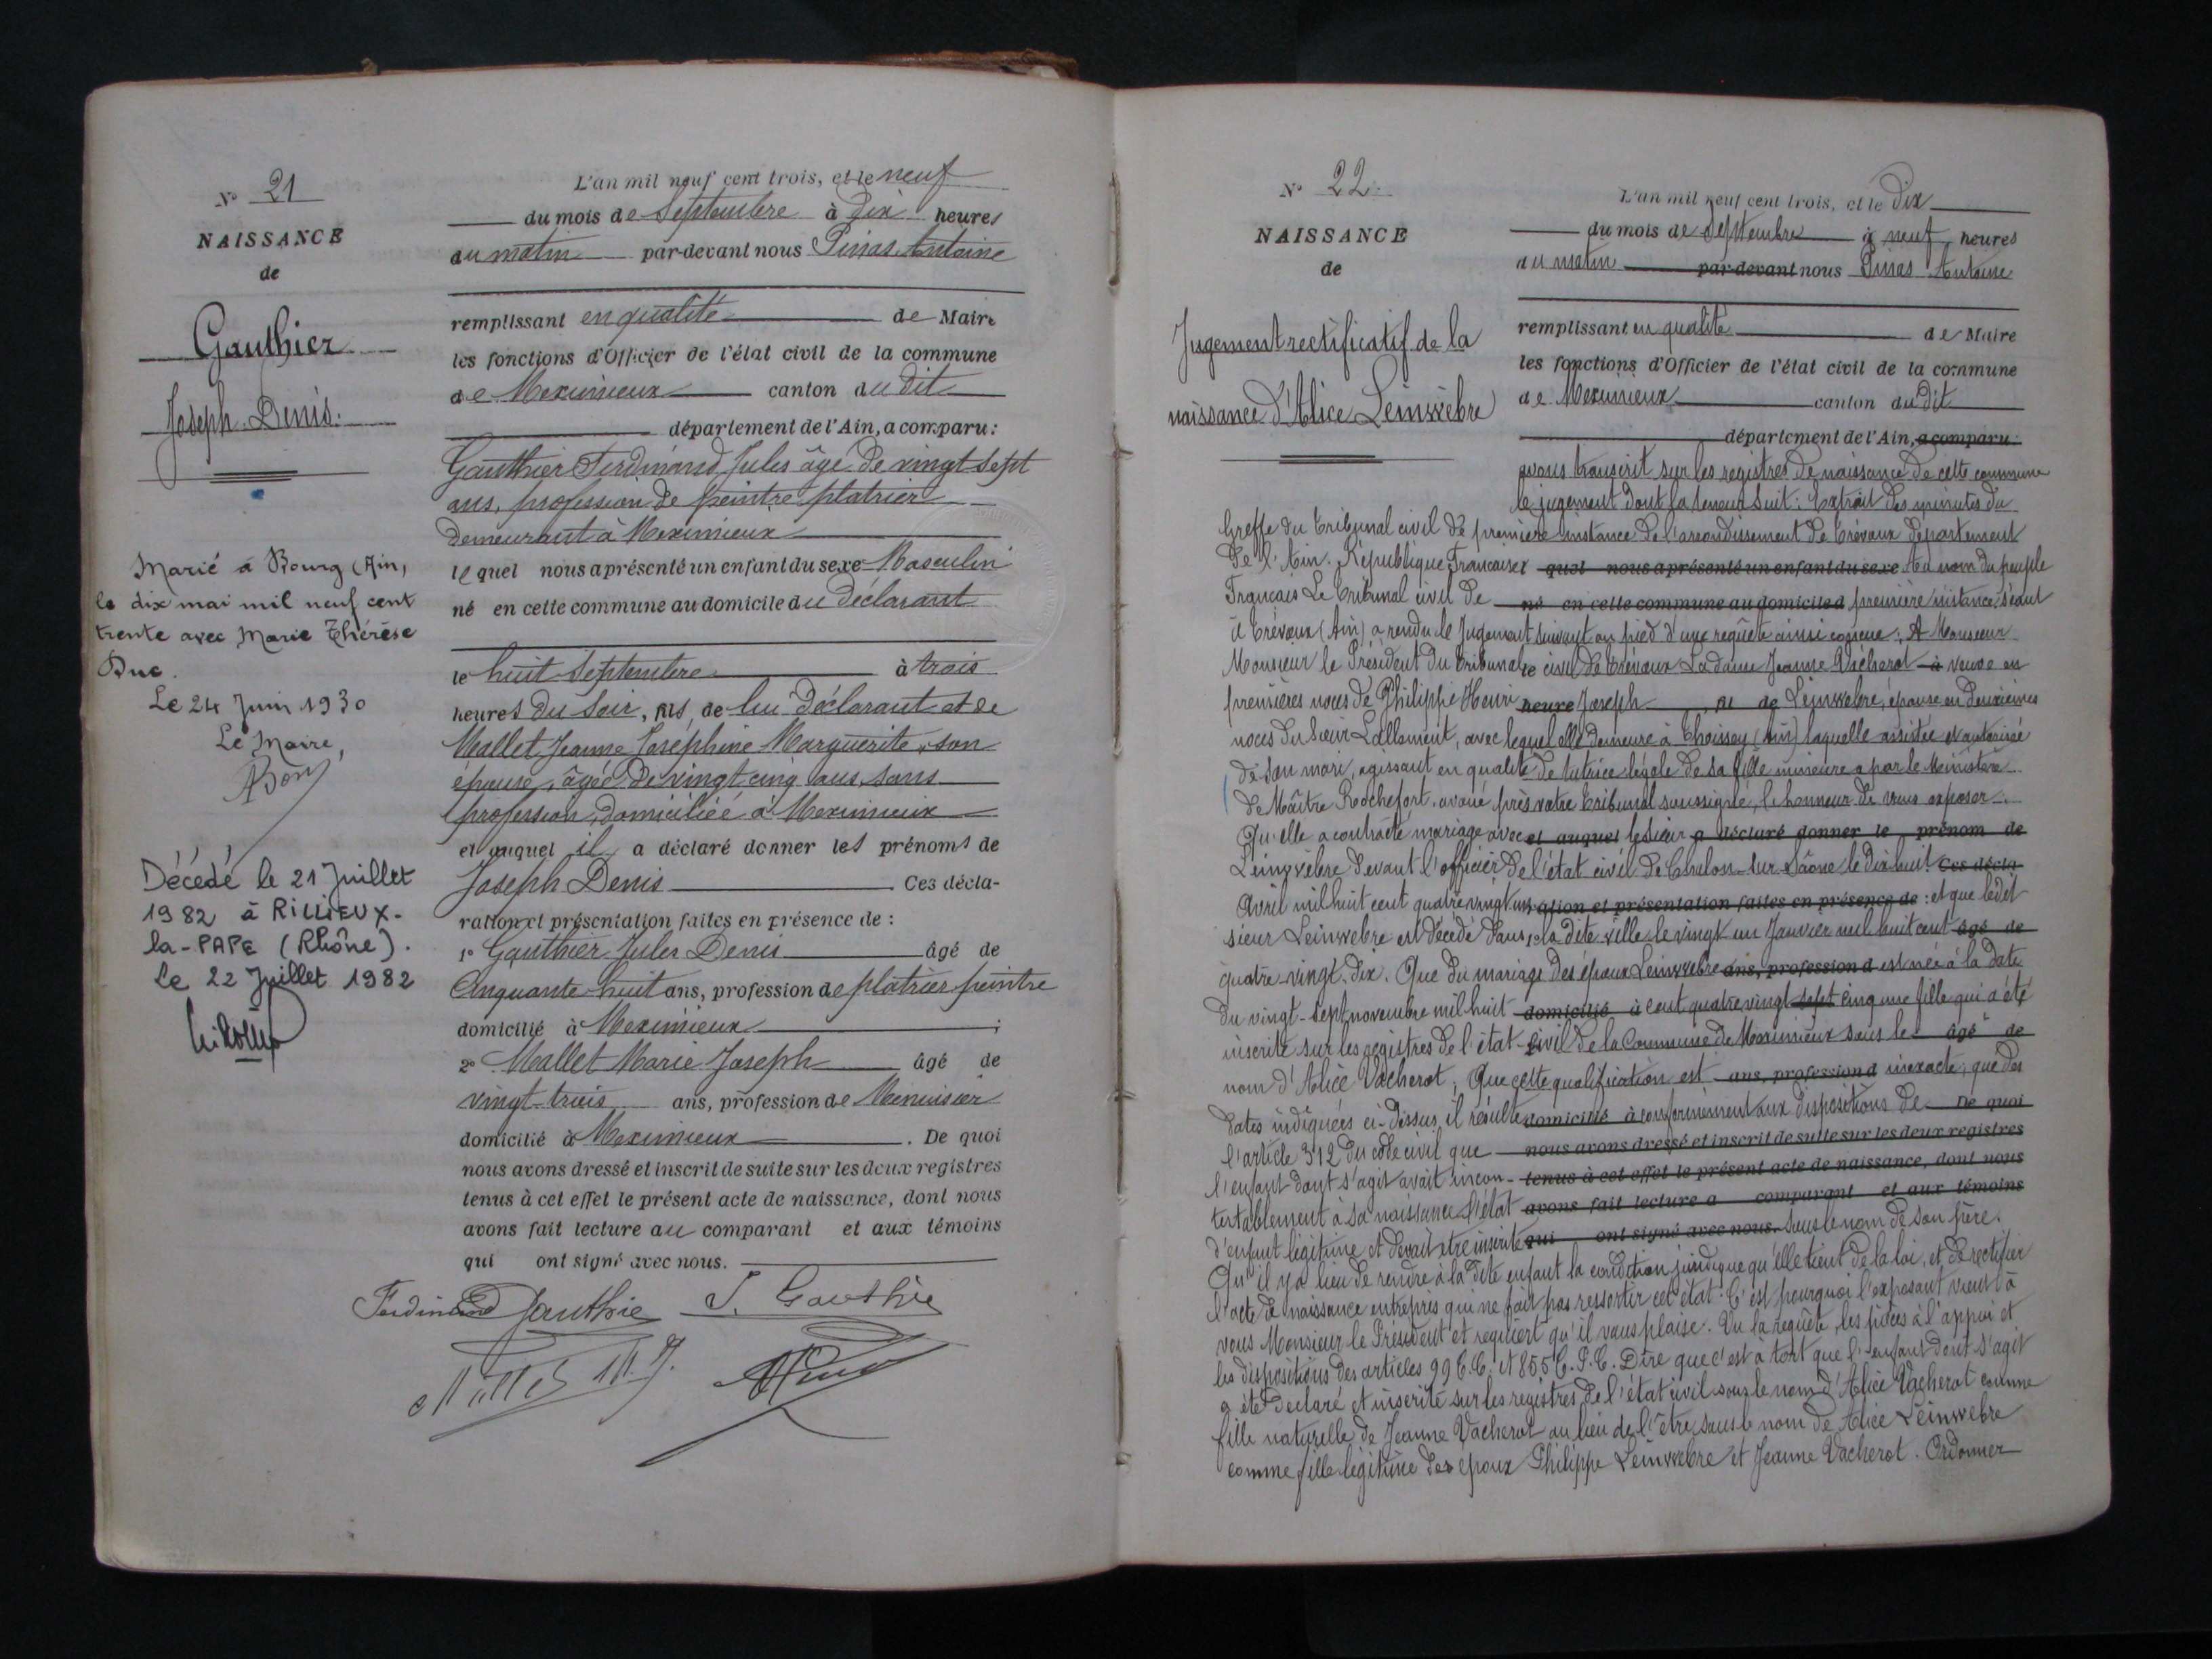 N° 21
NAISSANCE
de
Gauthier
Joseph Denis.
Marié à Bourg (Ain,
le dix mai mil neuf cent
trente avec Marie Thérèse
Duc.
Le 24 Juin 1930
Le Maire,
Décédé le 21 Juillet
1982 à RILLIEUX-
la-PAPE (Rhône).
Le 22 Juillet 1982
L'an mil neuf cent trois, et le neuf
du mois de Septembre à Dix heures
du matin par-devant nous Pinas Antoine
remplissant en qualité de Maire
les fonctions d'Officier de l'état civil de la commune
de Meximieux canton du dit
département de l'Ain, a comparu:
Gauthier Ferdinand Jules âgé de vingt sept
ans, profession de peintre platrier
demeurant à Meximieux
lequel nous a présenté un enfant du sexe Masculin
né en cette commune au domicile du Déclarant
le huit Septembre à trois
heures du soir, fils de lui Déclarant et de
Mallet Jeanne Joséphine Marguerite, son
épouse, âgée de vingt cinq ans, sans
profession, domiciliée à Meximieux
et auquel il a déclaré donner les prénoms de
Joseph Denis. Ces décla-
ration et présentation faites en présence de :
1° Gauthier Jules Denis âgé de
Cinquante huit ans, profession de platrier peintre
domicilié à Meximieux ;
2° Mallet Marie Joseph âgé de
vingt-trois ans, profession de Menuisier
domicilié à Meximieux. De quoi
nous avons dressé et inscrit de suite sur les deux registres
tenus à cet effet le présent acte de naissance, dont nous
avons fait lecture au comparant et aux témoins
qui ont signé avec nous.
Ferdinand Gauthier J. Gauthier
N° 22.
NAISSANCE
de
Jugement rectificatif de la
naissance d'Alice Leinwèbre
L'an mil neuf cent trois, et le Dix
du mois de Septembre à neuf heures
du matin par-devant nous Pinas Antoine
remplissant en qualité de Maire
les fonctions d'Officier de l'état civil de la commune
de Meximieux canton du dit
département de l'Ain, a comparu:
avons transcrit sur les registres de naissance de cette commune
le jugement dont la teneur suit: Extrait des minutes du
Greffe du tribunal civil de première instance de l'arrondissement de Trévoux département
de l'Ain. République Française quel nous a présenté un enfant du sexe Au nom du peuple
Français Le tribunal civil de né en cette commune au domicile d première instance séant
à Trévoux (Ain) a rendu le Jugement suivant au pied d'une requête ainsi conçue: A Monsieur
Monsieur le Président du tribunal le civil de Trévoux La dame Jeanne Vacherot à veuve en
premières noces de Philippe Henri heure Joseph de Leinwebre, épouse en deuxièmes
noces du sieur Lallement, avec lequel elle demeure à Thoissey (Ain) laquelle assistée et autorisée
de son mari, agissant en qualité de tutrice légale de sa fille mineure a par le Ministère
de Maître Rochefort, avoué près votre tribunal soussigné, l'honneur de vous exposer.
Qu'elle a contracté mariage avec et auquel le sieur a déclaré donner le prénom de
Leinwèbre devant l'officier de l'état civil de Chalon-sur-Saône le dix huit Ces décla-
Avril mil huit cent quatre vingt un ration et présentation faites en présence de : et que ledit
sieur Leinwebre est décédé dans la dite ville le vingt un Janvier mil huit cent âgé de
quatre vingt dix. Que du mariage des époux Leinwebre ans, profession d est née à la date
du vingt-sept novembre mil huit domicilié à cent quatre vingt sept cinq une fille qui a été
inscrite sur les registres de l'état-civil de la Commune de Meximieux sous le âgé de
nom d'Alice Vacherot, Que cette qualification est ans, profession d inexacte, que des
dates indiquées ci-dessus il résulte domicilié à conformément aux dispositions de De quoi
l'article 312 du code civil que nous avons dressé et inscrit de suite sur les deux registres
l'enfant dont s'agit avait incon- tenus à cet effet le présent acte de naissance, dont nous
testablement à sa naissance l'état avons fait lecture a comparant et aux témoins
d'enfant légitime et devait être inscrite qui ont signé avec nous. sous le nom de son père.
Qu'il y a lieu de rendre à la dite enfant la condition juridique qu'elle tient de la loi, et de rectifier
l'acte de naissance entrepris qui ne fait pas ressortir cet état. C'est pourquoi l'exposant vient à
vous Monsieur le Président et requiert qu'il vous plaise. Vu la requête, les pièces à l'appui et
les dispositions des articles 99 C.C. et 855 C.P.C. Dire que c'est à tort que l'enfant dont s'agit
a été déclaré et inscrite sur les registres de l'état civil sous le nom d'Alice Vacherot comme
fille naturelle de Jeanne Vacherot au lieu de l'être sous le nom de Alice Leinwebre
comme fille légitime des époux Philippe Leinwebre et Jeanne Vacherot. Ordonner